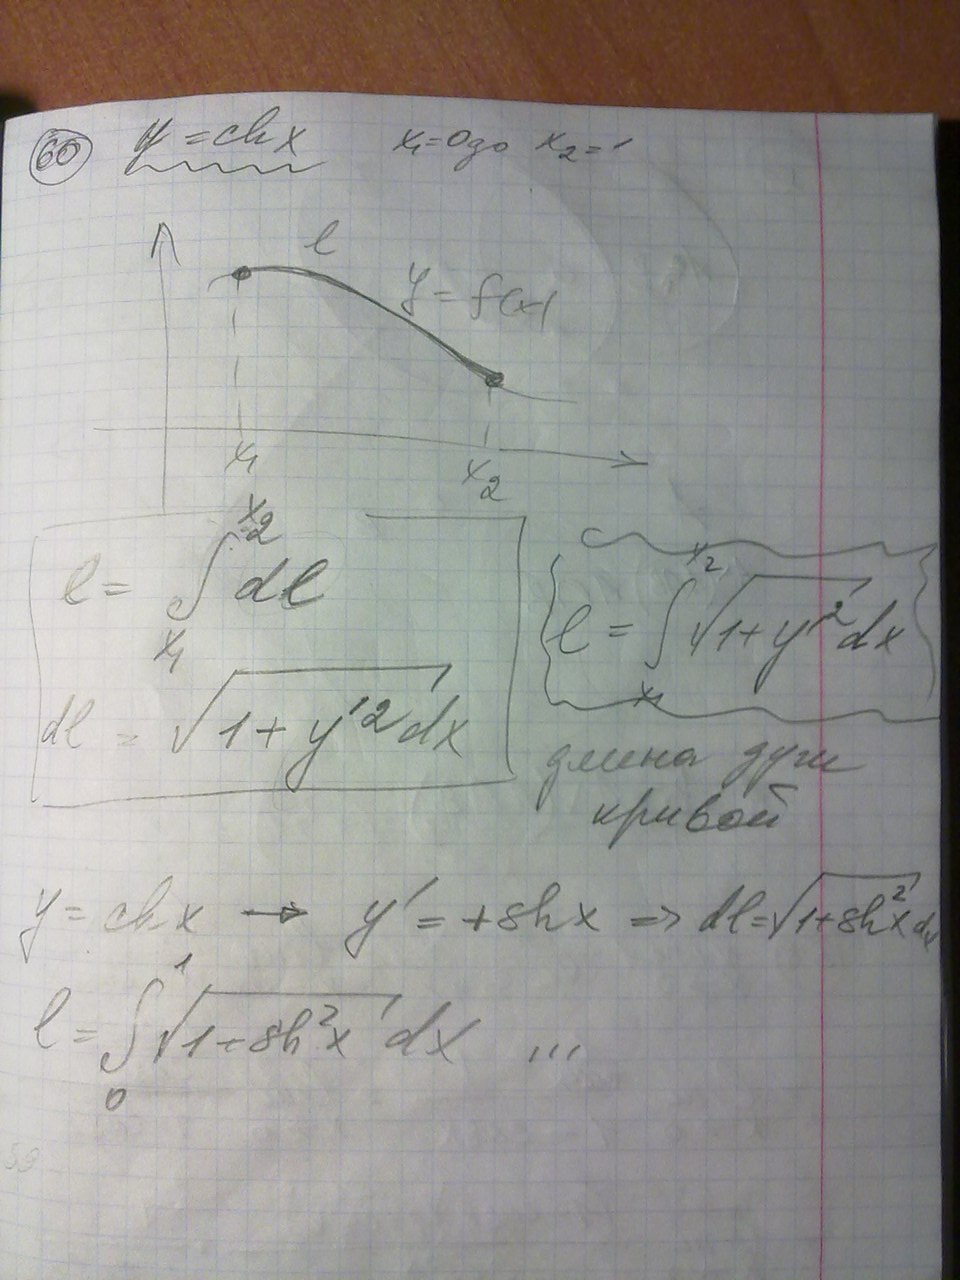 60 y = ch x x₁=0 до x₂=1
l
y = f(x)
x₁
x₂
l = ∫ₓ₁ˣ² dl
l = ∫ₓ₁ˣ² √(1+y'²) dx
dl = √(1+y'²) dx
длина дуги
кривой
y = ch x → y' = +sh x => dl=√(1+sh²x) dx
l = ∫₀¹ √(1+sh²x) dx ...